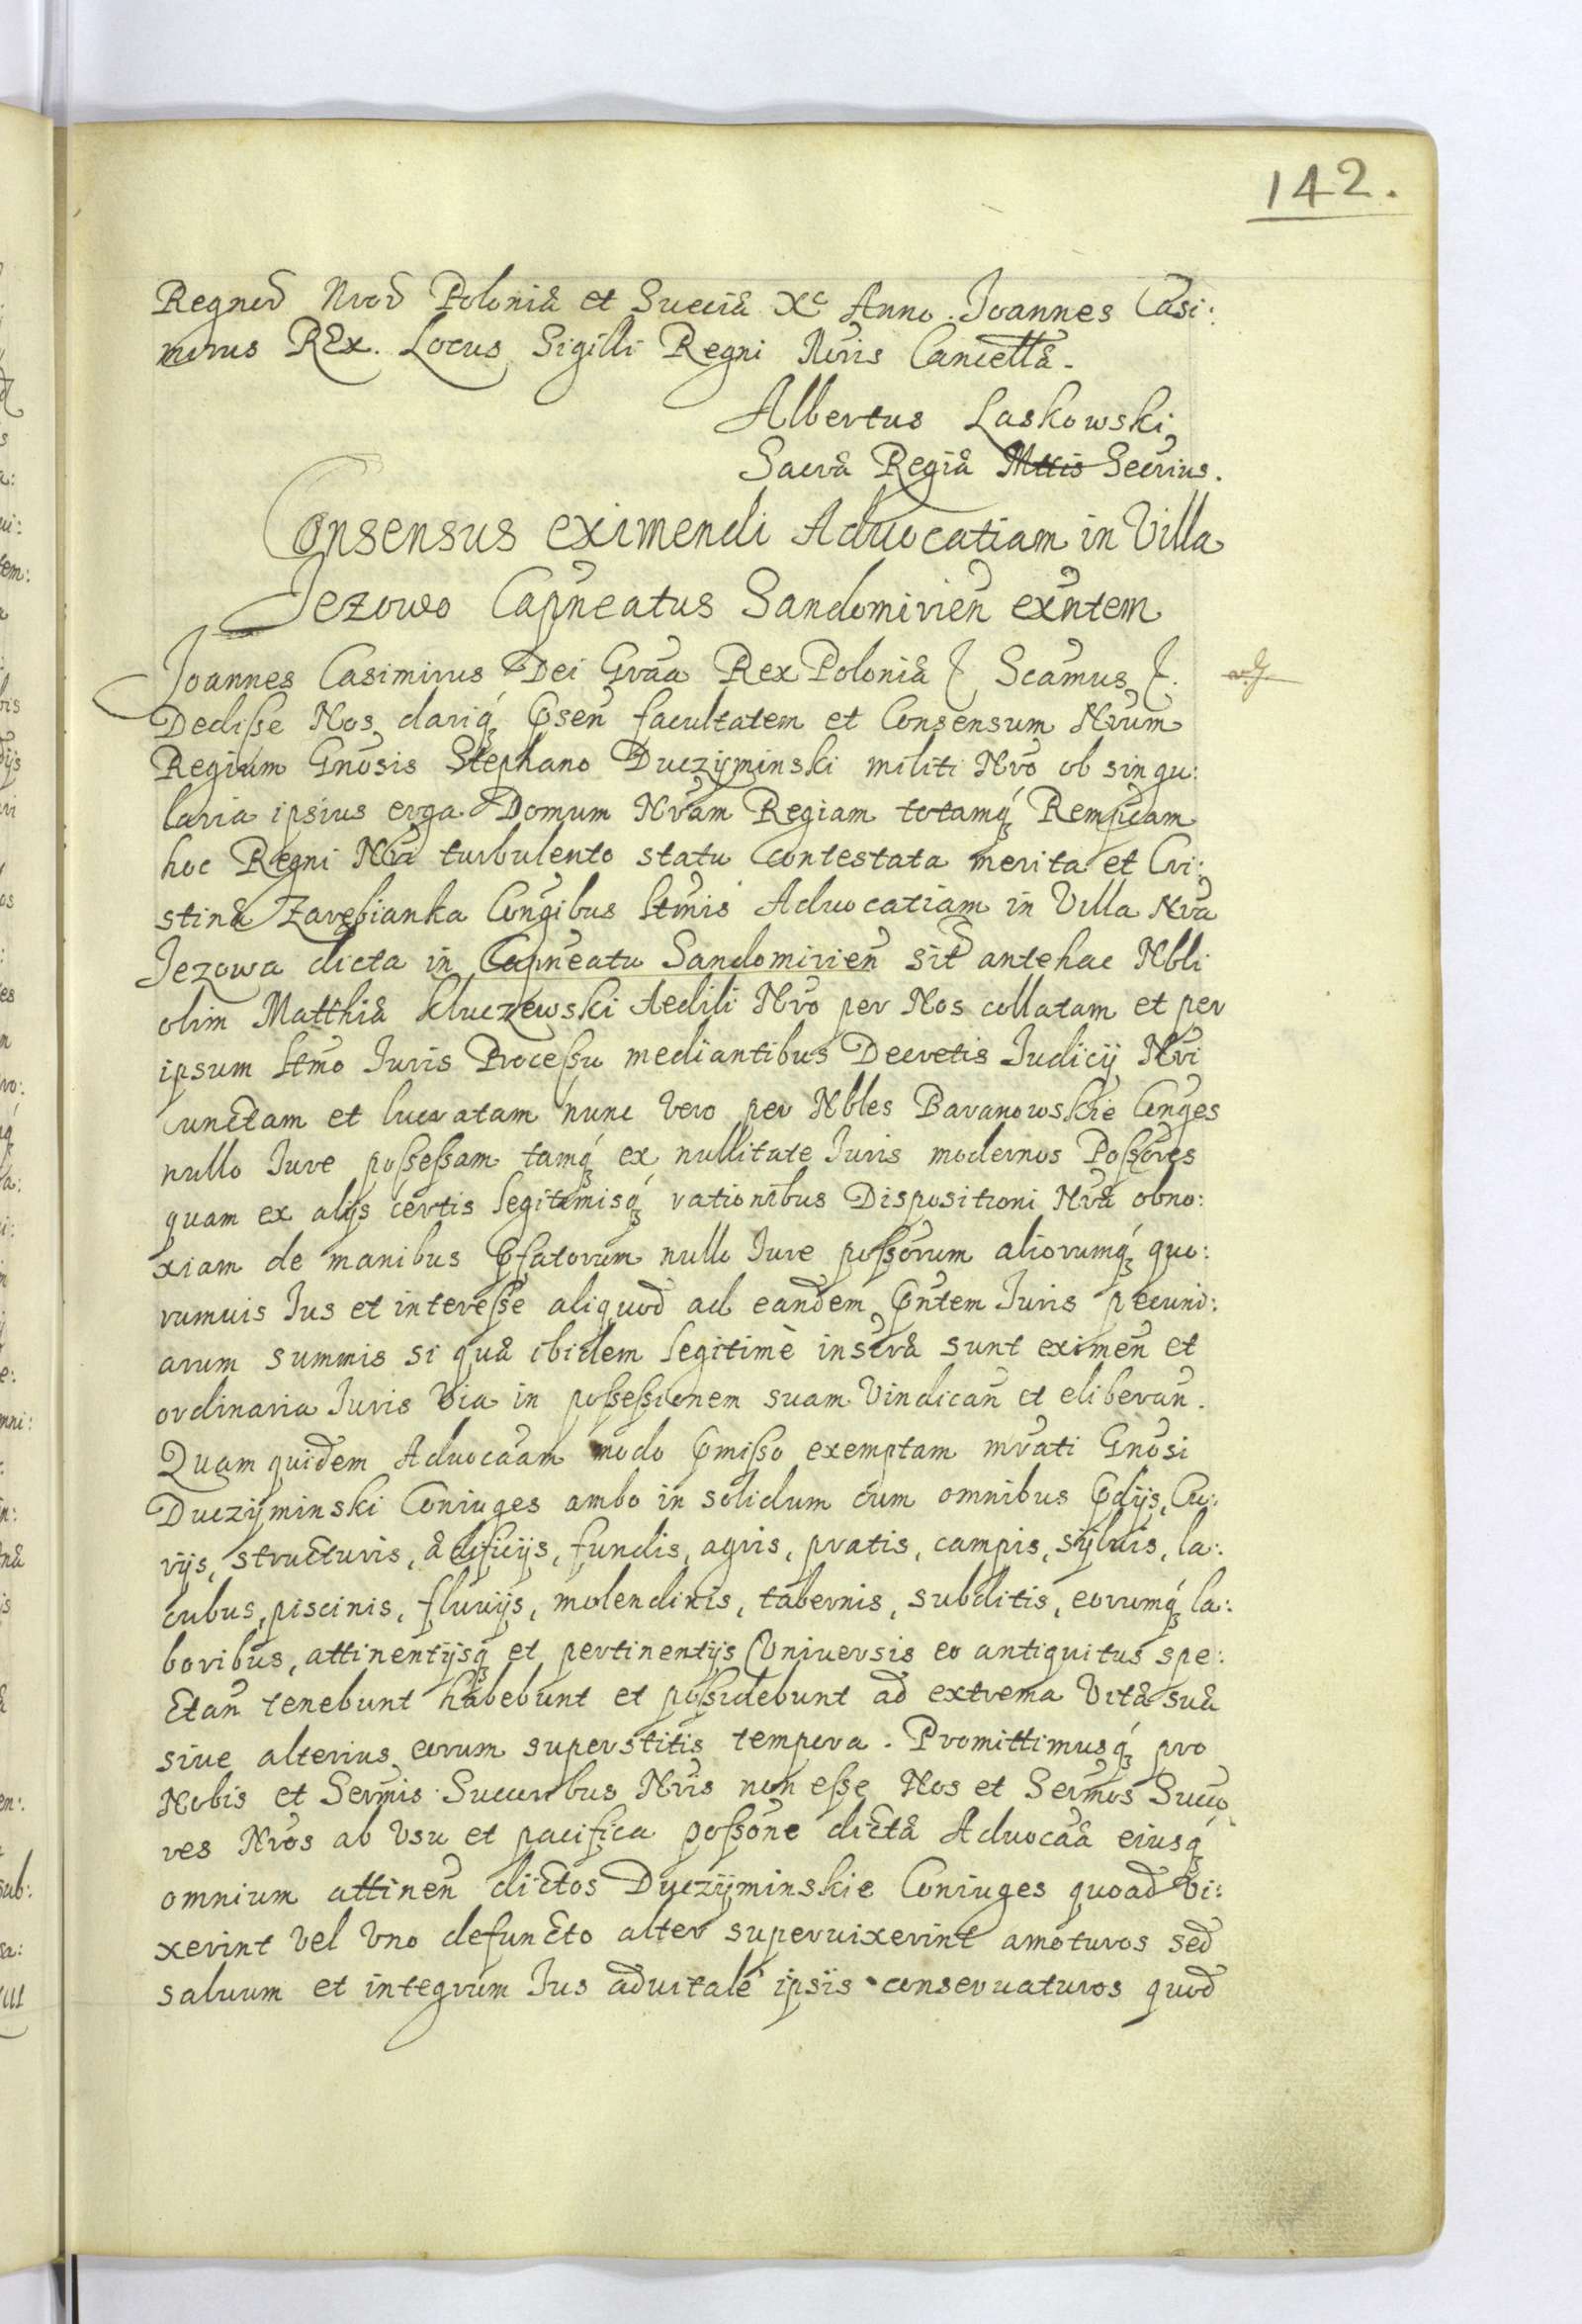 142.
Regnorũ Nrorũ Poloniæ et Sueciæ Xº Anno. Joannes Casi:
mirus REx. Locus Sigilli Regni Mõris Cancellæ.
Albertus Laskowski
Sacræ Regiæ Mttis Secrius.
Consensus eximendi Aduocatiam in Villa
Jezowo Capneatus Sandomirien̄ exñtem
Joannes Casimirus Dei Graa Rex Poloniæ &. Scamus &.
Dediſse Nos dariq́ꝫ Pn̄sen̄ facultatem et Consensum Nrum
Regium Gnosis Stephano Duczyminski militi Nro ob singu:
laria ipsius erga Domum Nram Regiam totamq́ꝫ Rempcam
hoc Regni Nri turbulento statu contestata merita et Cri:
stinæ Zarebianka Congibus ltmis Aduocatiam in Villa Nra
Jezowa dicta in Capneatu Sandomirien̄ sit̃ antehac Nbli
olim Matthiæ Kluczewski Aedili Nro per Nos collatam et per
ipsum ltmo Iuris Proceſsu mediantibus Decretis Iudicij Nri
cunctam et lucratam nunc vero per Nbles Baranowskie Cõnges
nullo Iure poſseſsam tamq́ꝫ ex nullitate Iuris modernos Poſsores
quam ex alijs certis legitimisq́ꝫ rationibus Dispositioni Nræ obno:
xiam de manibus Pfatorum nullo Iure poſsorum aliorumq́ꝫ quo:
rumuis Ius et intereſse aliquod ad eandem Pñtem Iuris pecuni:
arum summis si quæ ibidem legitimè inscræ sunt eximen̄ et
ordinaria Iuris Via in poſseſsionem suam Vindican̄ et eliberan̄.
Quam quidem Aduocaam modo Pmiſso exemptam mrati Gnosi
Duczyminski Coniuges ambo in solidum cum omnibus Pdijs, Cu:
rijs, structuris, ædificijs, fundis, agris, pratis, campis, syluis, la:
cubus, piscinis, fluuijs, molendinis, tabernis, subditis, eorumq́ꝫ la:
boribus, attinentijsq́ꝫ et pertinentijs Vniuersis eo antiquitus spe:
ctan̄ tenebunt habebunt et poſsidebunt ad extrema Vitæ suæ
siue alterius eorum superstitis tempora. Promittimusq́ꝫ pro
Nobis et Sermis Succoribus Nris non eſse Nos et Sermos Succo
res Nros ab Vsu et pacifica poſsone dictæ Aduocaæ eiusq́ꝫ
omnium attinen̄ dictos Duczyminskie Coniuges quoad Vi:
xerint Vel Vno defuncto alter superuixerint amoturos sed
saluum et integrum Ius aduitale ipsis conseruaturos quod